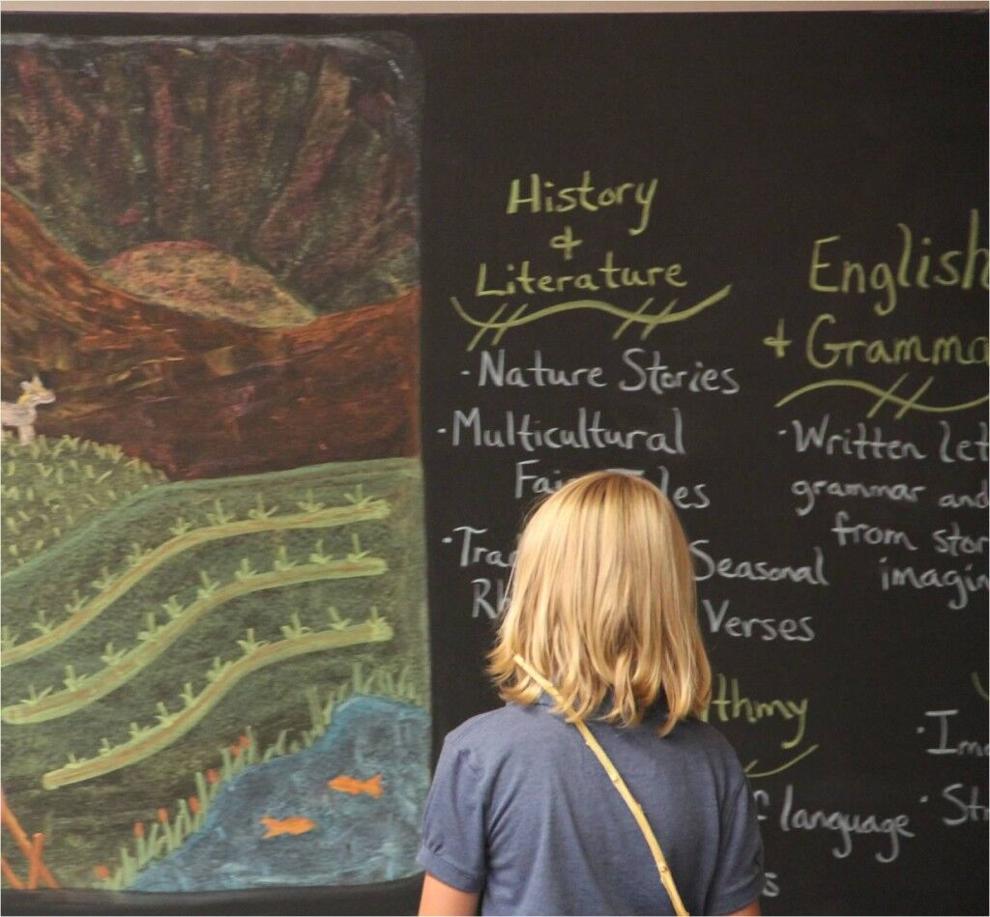 History
&
Literature
· Nature Stories
· Multicultural
Seasonal
Verses
language
English
+ Gramma
· Written let
grammar and
from stor
imagin
· Ime
· Str